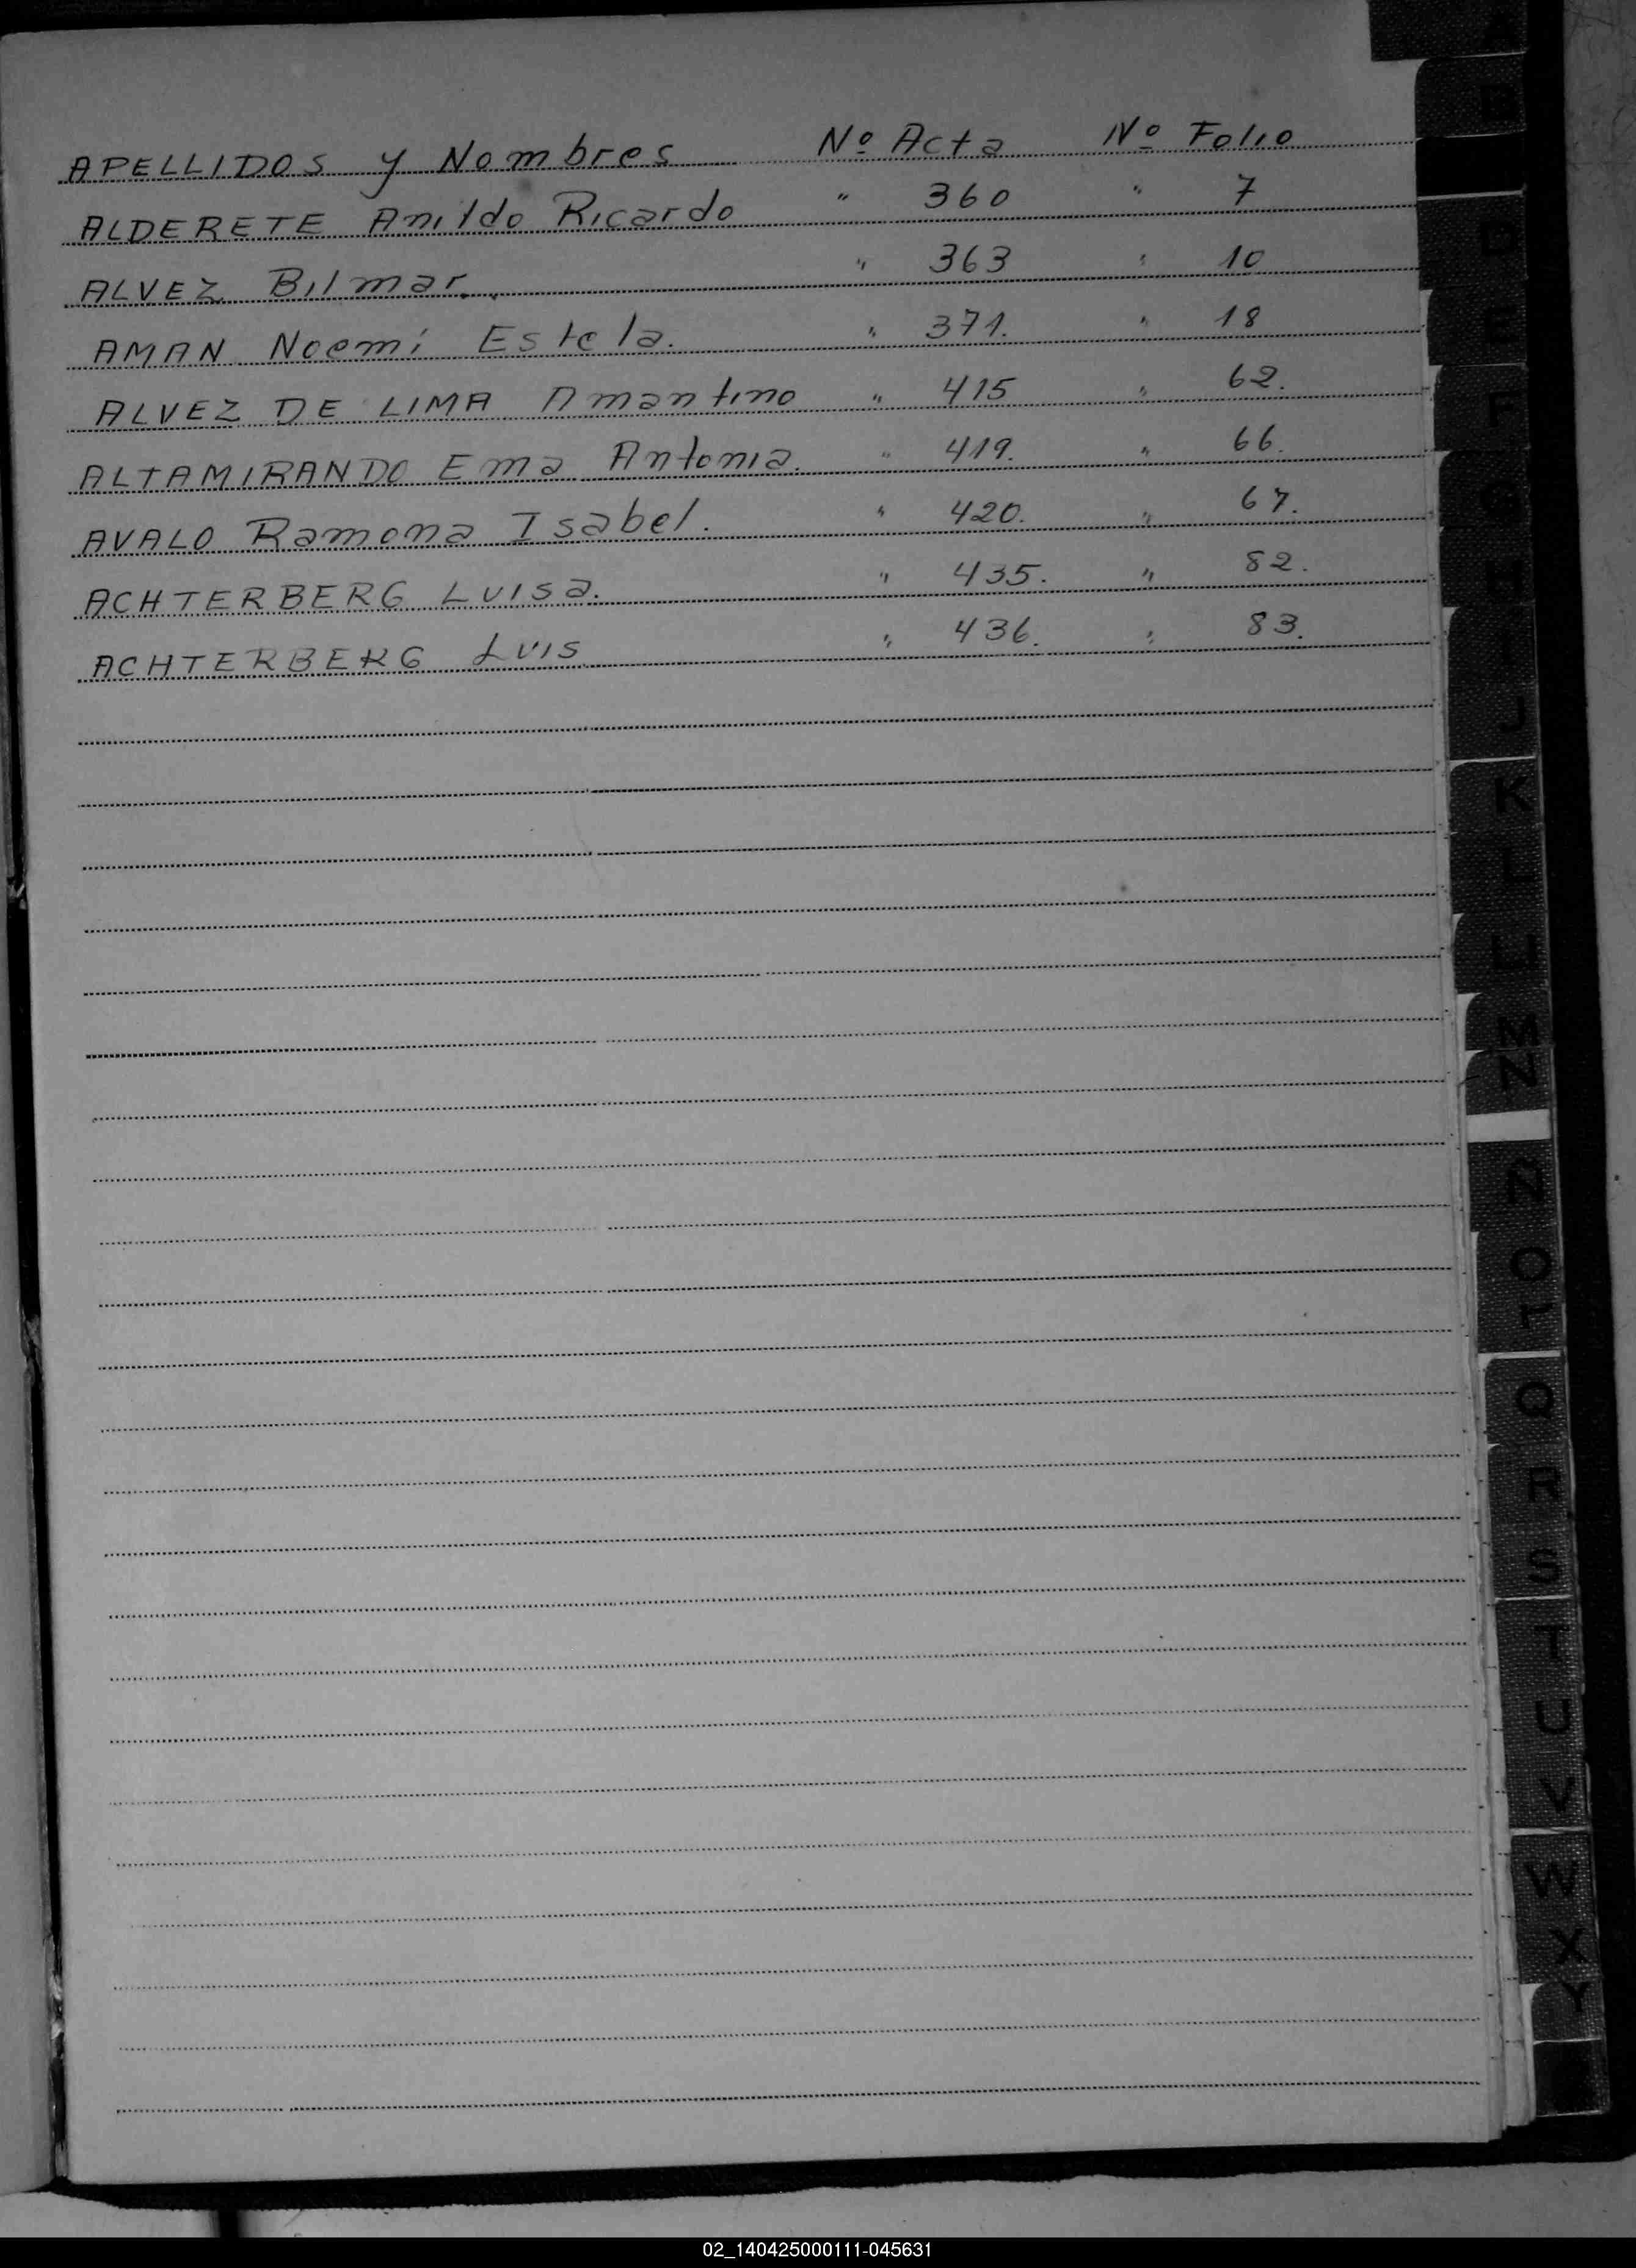 APELLIDOS y Nombres Nº Acta Nº Folio
ALDERETE Anildo Ricardo " 360 " 7
ALVEZ Bilmar. " 363 " 10
AMAN Noemí Estela. " 371. " 18
ALVEZ DE LIMA Amantino " 415 " 62.
ALTAMIRANDO Ema Antonia. " 419. " 66.
AVALO Ramona Isabel. " 420. " 67.
ACHTERBERG LUISa. " 435. " 82.
ACHTERBERG LUIS " 436. " 83.
A
B
D
E
F
G
H
I
J
K
L
LL
M
N
Ñ
O
P
Q
R
S
T
U
V
W
X
Y
02_140425000111-045631